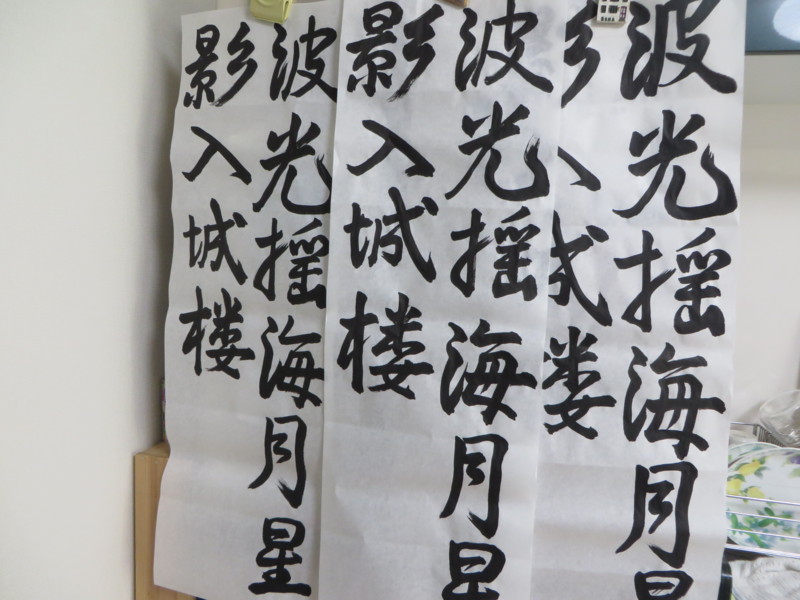 波光揺海月星
影入城楼
波光揺海月星
影入城楼
波光揺海月星
影入城楼